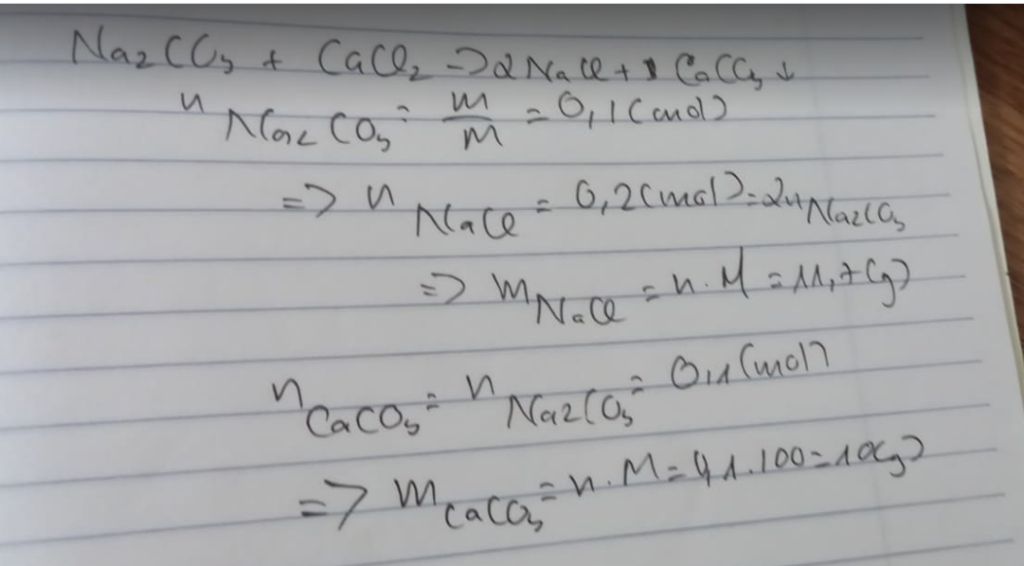 Na2CO3 + CaCl2 -> 2NaCl + 1 CaCO3 ↓
n Na2CO3 = m/M = 0,1 (mol)
=> n NaCl = 0,2 (mol) = 2n Na2CO3
=> m NaCl = n.M = 11,7 (g)
n CaCO3 = n Na2CO3 = 0,1 (mol)
=> m CaCO3 = n.M = 0,1.100 = 10(g)